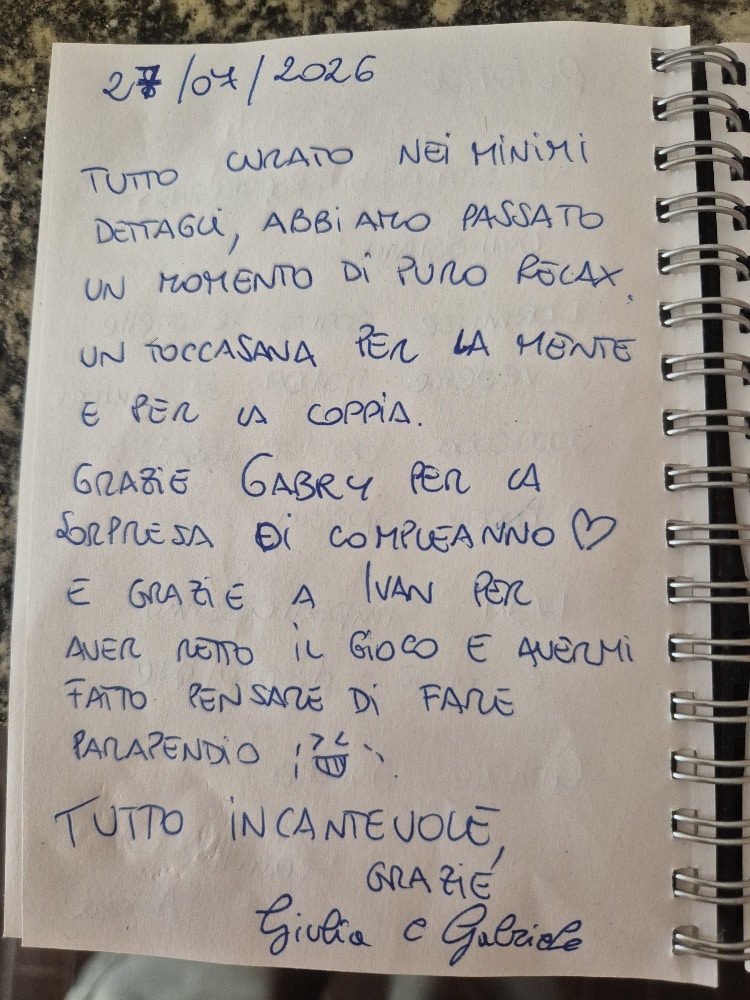 27/07/2026
TUTTO CURATO NEI MINIMI
DETTAGLI, ABBIAMO PASSATO
UN MOMENTO DI PURO RELAX.
UN TOCCASANA PER LA MENTE
E PER LA COPPIA.
GRAZIE GABRY PER LA
SORPRESA DI COMPLEANNO ♡
E GRAZIE A IVAN PER
AVER RETTO IL GIOCO E AVERMI
FATTO PENSARE DI FARE
PARAPENDIO
TUTTO INCANTEVOLE,
GRAZIE
Giulia e Gabriele